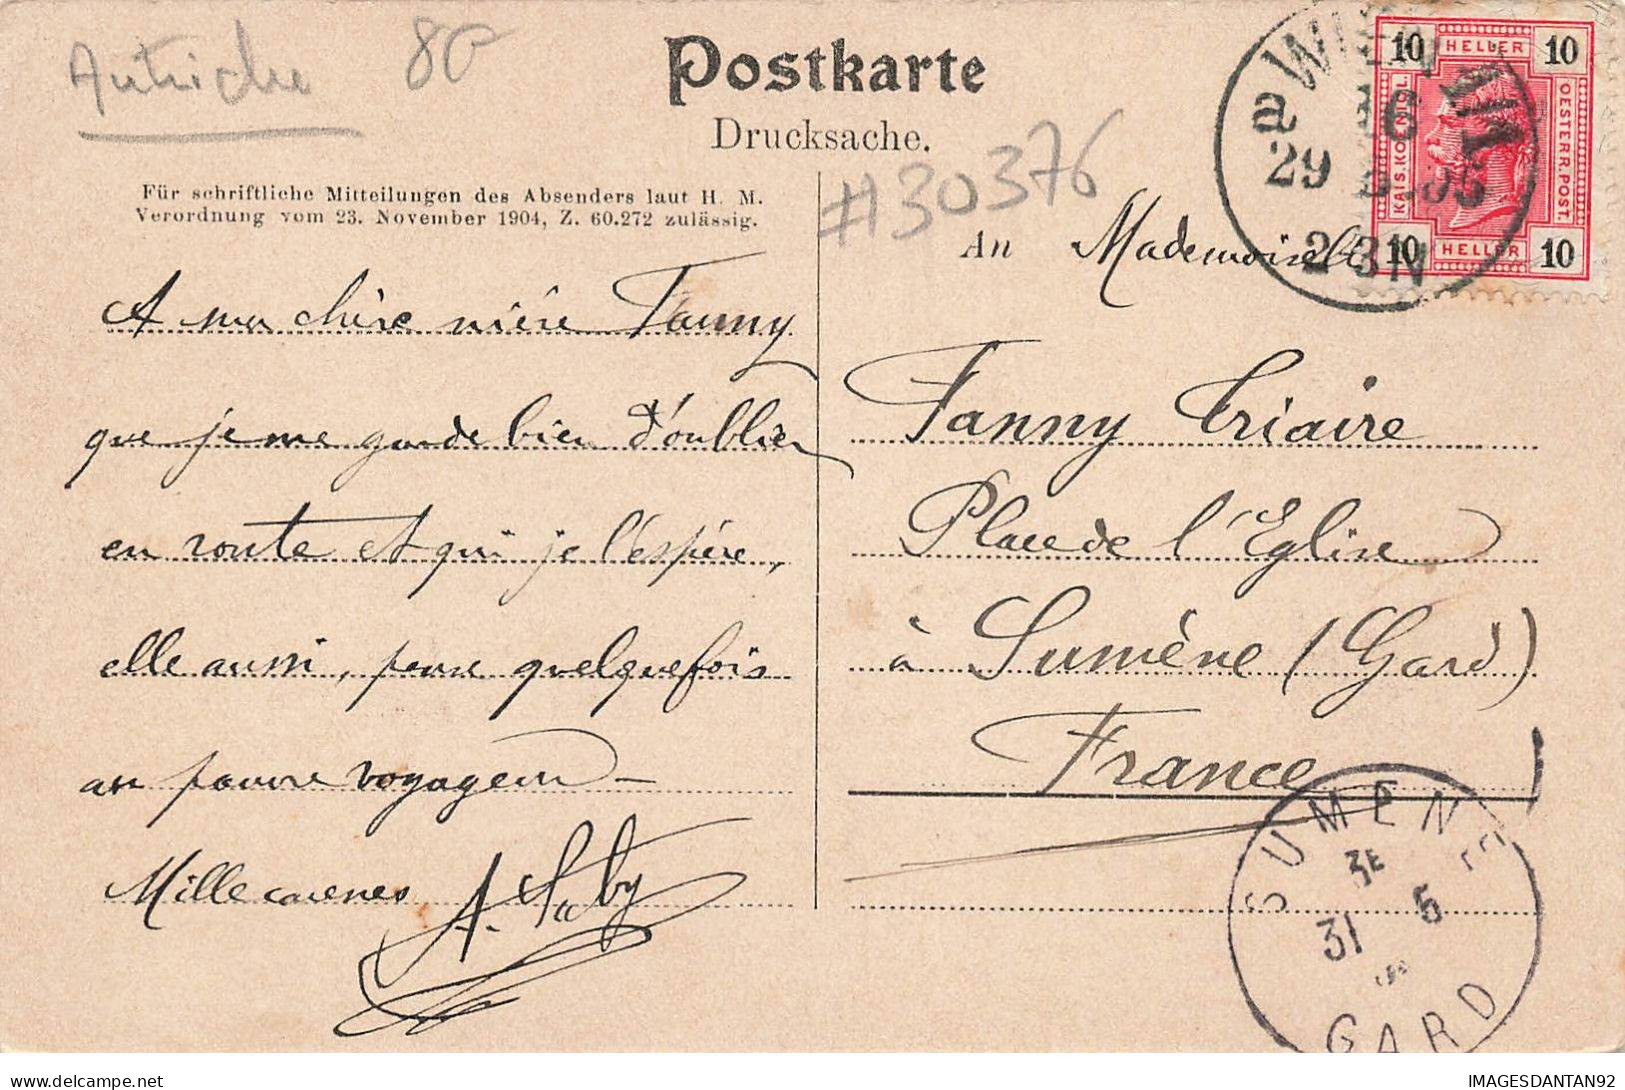 Autriche 80
Postkarte
Drucksache.
#30376
Für schriftliche Mitteilungen des Absenders laut H. M.
Verordnung vom 23. November 1904, Z. 60.272 zulässig.
A ma chère nièce Fanny
que je me garde bien d'oublier
en route et qui je l'espère,
elle aussi, pense quelquefois
au pauvre voyageur –
Mille caresses
An Mademoiselle
Fanny Triaire
Place de l'Eglise
à Sumène (Gard)
France
a WIEN
29
2-3N
10 HELLER 10
KAIS. KOENIGL.
OESTERR. POST.
10 HELLER 10
SUMENE
3E
31 5
GARD
IMAGESDANTAN92
delcampe.net